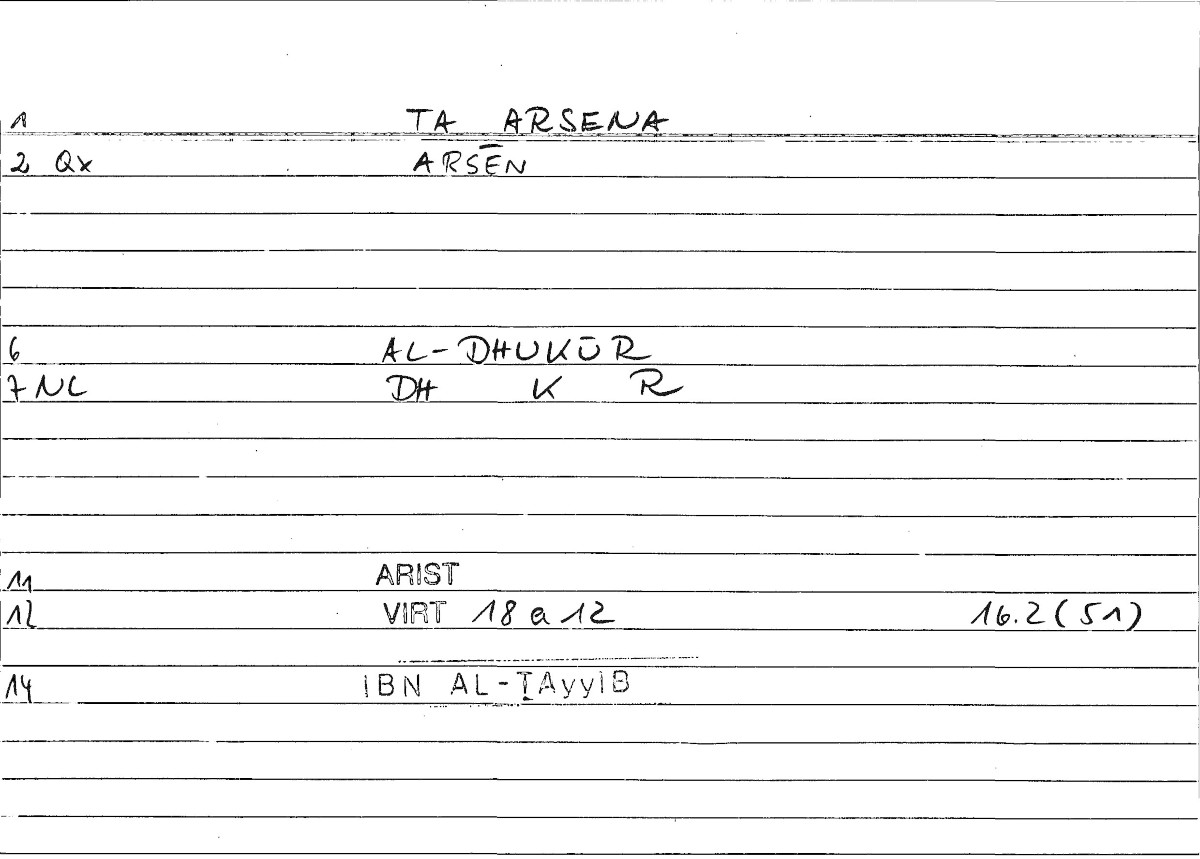 1 TA ARSENA
2 Qx ARSĒN
6 AL-DHUKŪR
7 NL DH K R
11 ARIST
12 VIRT 18 a 12 16.2 (51)
14 IBN AL-ṬAyyIB